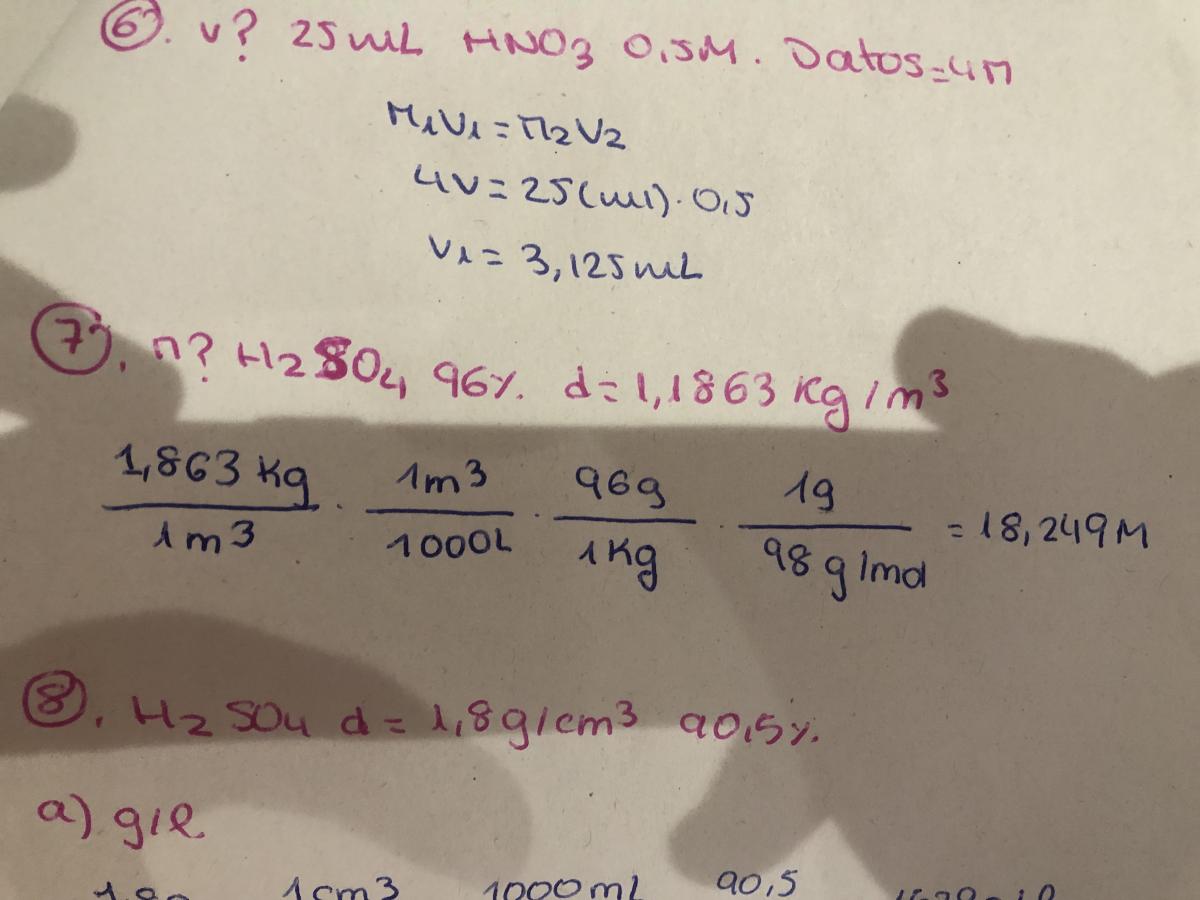 6). v? 25mL HNO3 0,5M. Datos=4M
M1V1 = M2V2
4V = 25(ml)·0,5
V1 = 3,125mL
7). M? H2SO4 96%. d=1,1863 Kg/m3
1,863 Kg / 1m3 · 1m3 / 1000L · 96g / 1Kg · 1g / 98 g/mol = 18,249M
8). H2SO4 d=1,8g/cm3 90,5%.
a) g/l
1cm3 1000mL 90,5